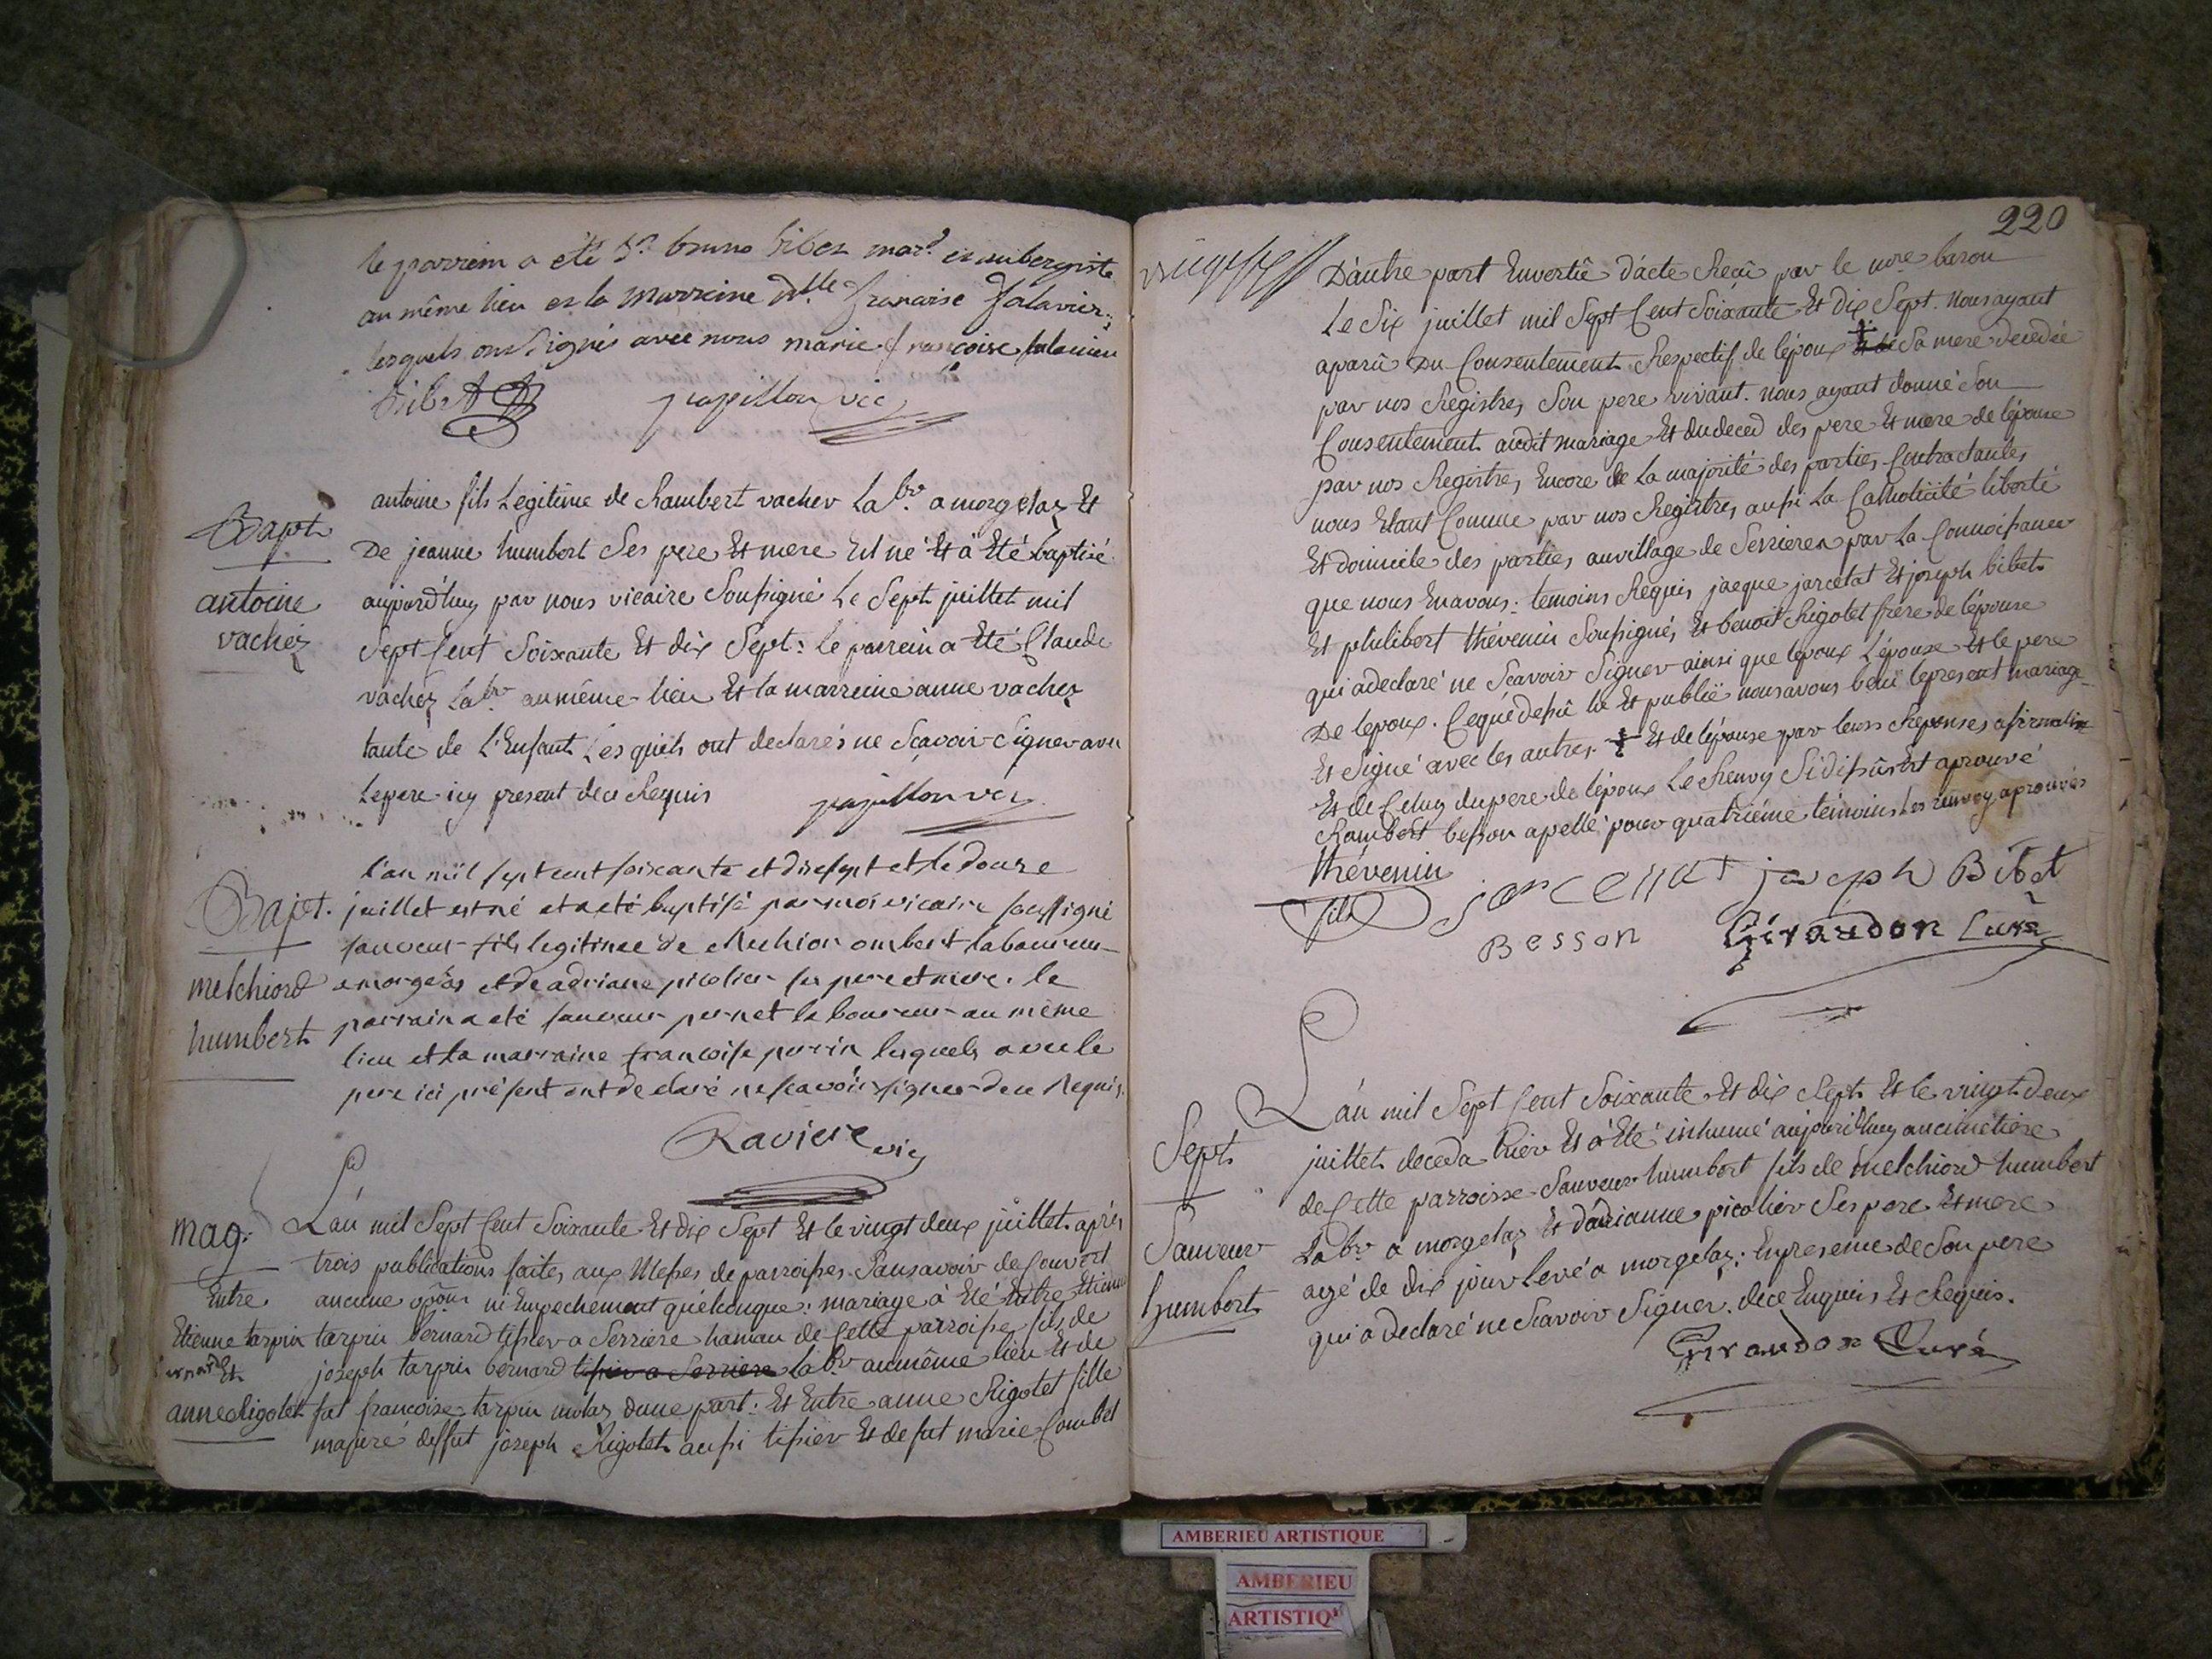 le parrein a été Sr bruno bibet mard et aubergiste
au même lieu et la Marreine dlle francoise Jalavier:
lesquels ont Signés avec nous marie françoise Jalavier
bibet papillon vic
Bapt.
antoine
vachez
antoine fils Legitime de Rambert vacher Labr. a morgelaz Et
De jeanne humbert Ses pere Et mere Est né Et a Eté baptisé
aujourd'huy par nous vicaire Soussigné Le Sept juillet mil
Sept Cent Soixante Et dix Sept: le parrein a Eté Claude
vachez Labr. au même lieu Et la marreine anne vachez
tante de L'Enfant Lesquels ont declarés ne Scavoir Signer avec
Le pere icy present de ce Requis papillon vic.
Bapt.
melchiord
humbert
l'an mil sept cent soixante et dixsept et le douze
juillet est né et a eté baptisé par moi vicaire soussigné
sauveur fils legitime de Melchior ombert laboureur
a morgelas et de adriane picolier ses pere et mere. le
parrain a eté sauveur pernet laboureur au même
lieu et la marraine francoise perrin lesquels avec le
pere ici présent ont declaré ne scavoir signer de ce Requis.
Raviere vic
mag.
Entre
Etienne tarpin
bernard Et
anne Rigolet
L'an mil Sept Cent Soixante Et dix Sept Et le vingt deux juillet après
trois publications faites aux Messes de parroisses Sans avoir decouvert
aucune opôon ni Empechement quélconque: mariage à Eté Entre Etienne
tarpin bernard tissier a Serriere hamau de Cette parroisse fils de
joseph tarpin bernard tissier a Serriere Labr. au même lieu Et de
fut francoise tarpin molaz dune part: Et Entre anne Rigolet fille
majere deffut joseph Rigolet aussi tissier Et de fut marie Combet
220
D'autre part Envertû d'acte Reçû par le nore baron
Le Six juillet mil Sept Cent Soixante Et dix Sept. Nous ayant
aparû Du Consentement Respectif de lépoux ‡ Et de Sa mere decedée
par nos Registres, Son pere vivant. nous ayant donné Son
Consentement audit mariage Et du deced des pere Et mere de lépouse
par nos Registres, Encore de La majorité des parties Contractantes,
nous Etant Connue par nos Registres, aussi La Catholicité liberté
Et domicile des parties, au village de Serrieres par La Connoissance
que nous En avons: temoins Requis, jacque jarcelat Et joseph bibet
Et philibert thévenin Soussignés, Et benoit Rigolet frère de lépouse
qui a declaré ne Scavoir Signer ainsi que lepoux L'épouse Et le pere
De lepoux. Ce que dessû lu Et publié nous avons beni le present mariage
Et Signé avec les autres. ‡ Et de lépouse par leurs Reponses afirmative
Et de Celuy du pere de lépoux Le Renvoy Si dessûs Est aprouvé
Rambert besson apellé pour quatriéme témoins Les renvoy aprouvés
thévenin fils jarcellat joseph Bibet
Besson Girandon Curé
Sept.
Sauveur
humbert
L'an mil Sept Cent Soixante Et dix Sept Et le vingt Deux
juillet deceda hier Et a Eté inhumé aujourdhuy au cimetiere
de Cette parroisse Sauveur humbert fils de melchiord humbert
Labr a morgelaz Et dadrianne picolier Ses pere Et mere
agé de dix jour Levé a morgelaz: En presence de Son pere
qui a declaré ne Scavoir Signer. de ce Enquis Et Requis.
Girandon Curé
AMBERIEU ARTISTIQUE
AMBERIEU
ARTISTIQ